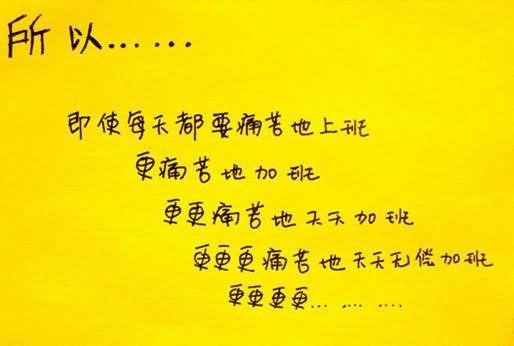 所以……
即使每天都要痛苦地上班
更痛苦地加班
更更痛苦地天天加班
更更更痛苦地天天无偿加班
更更更更… … …